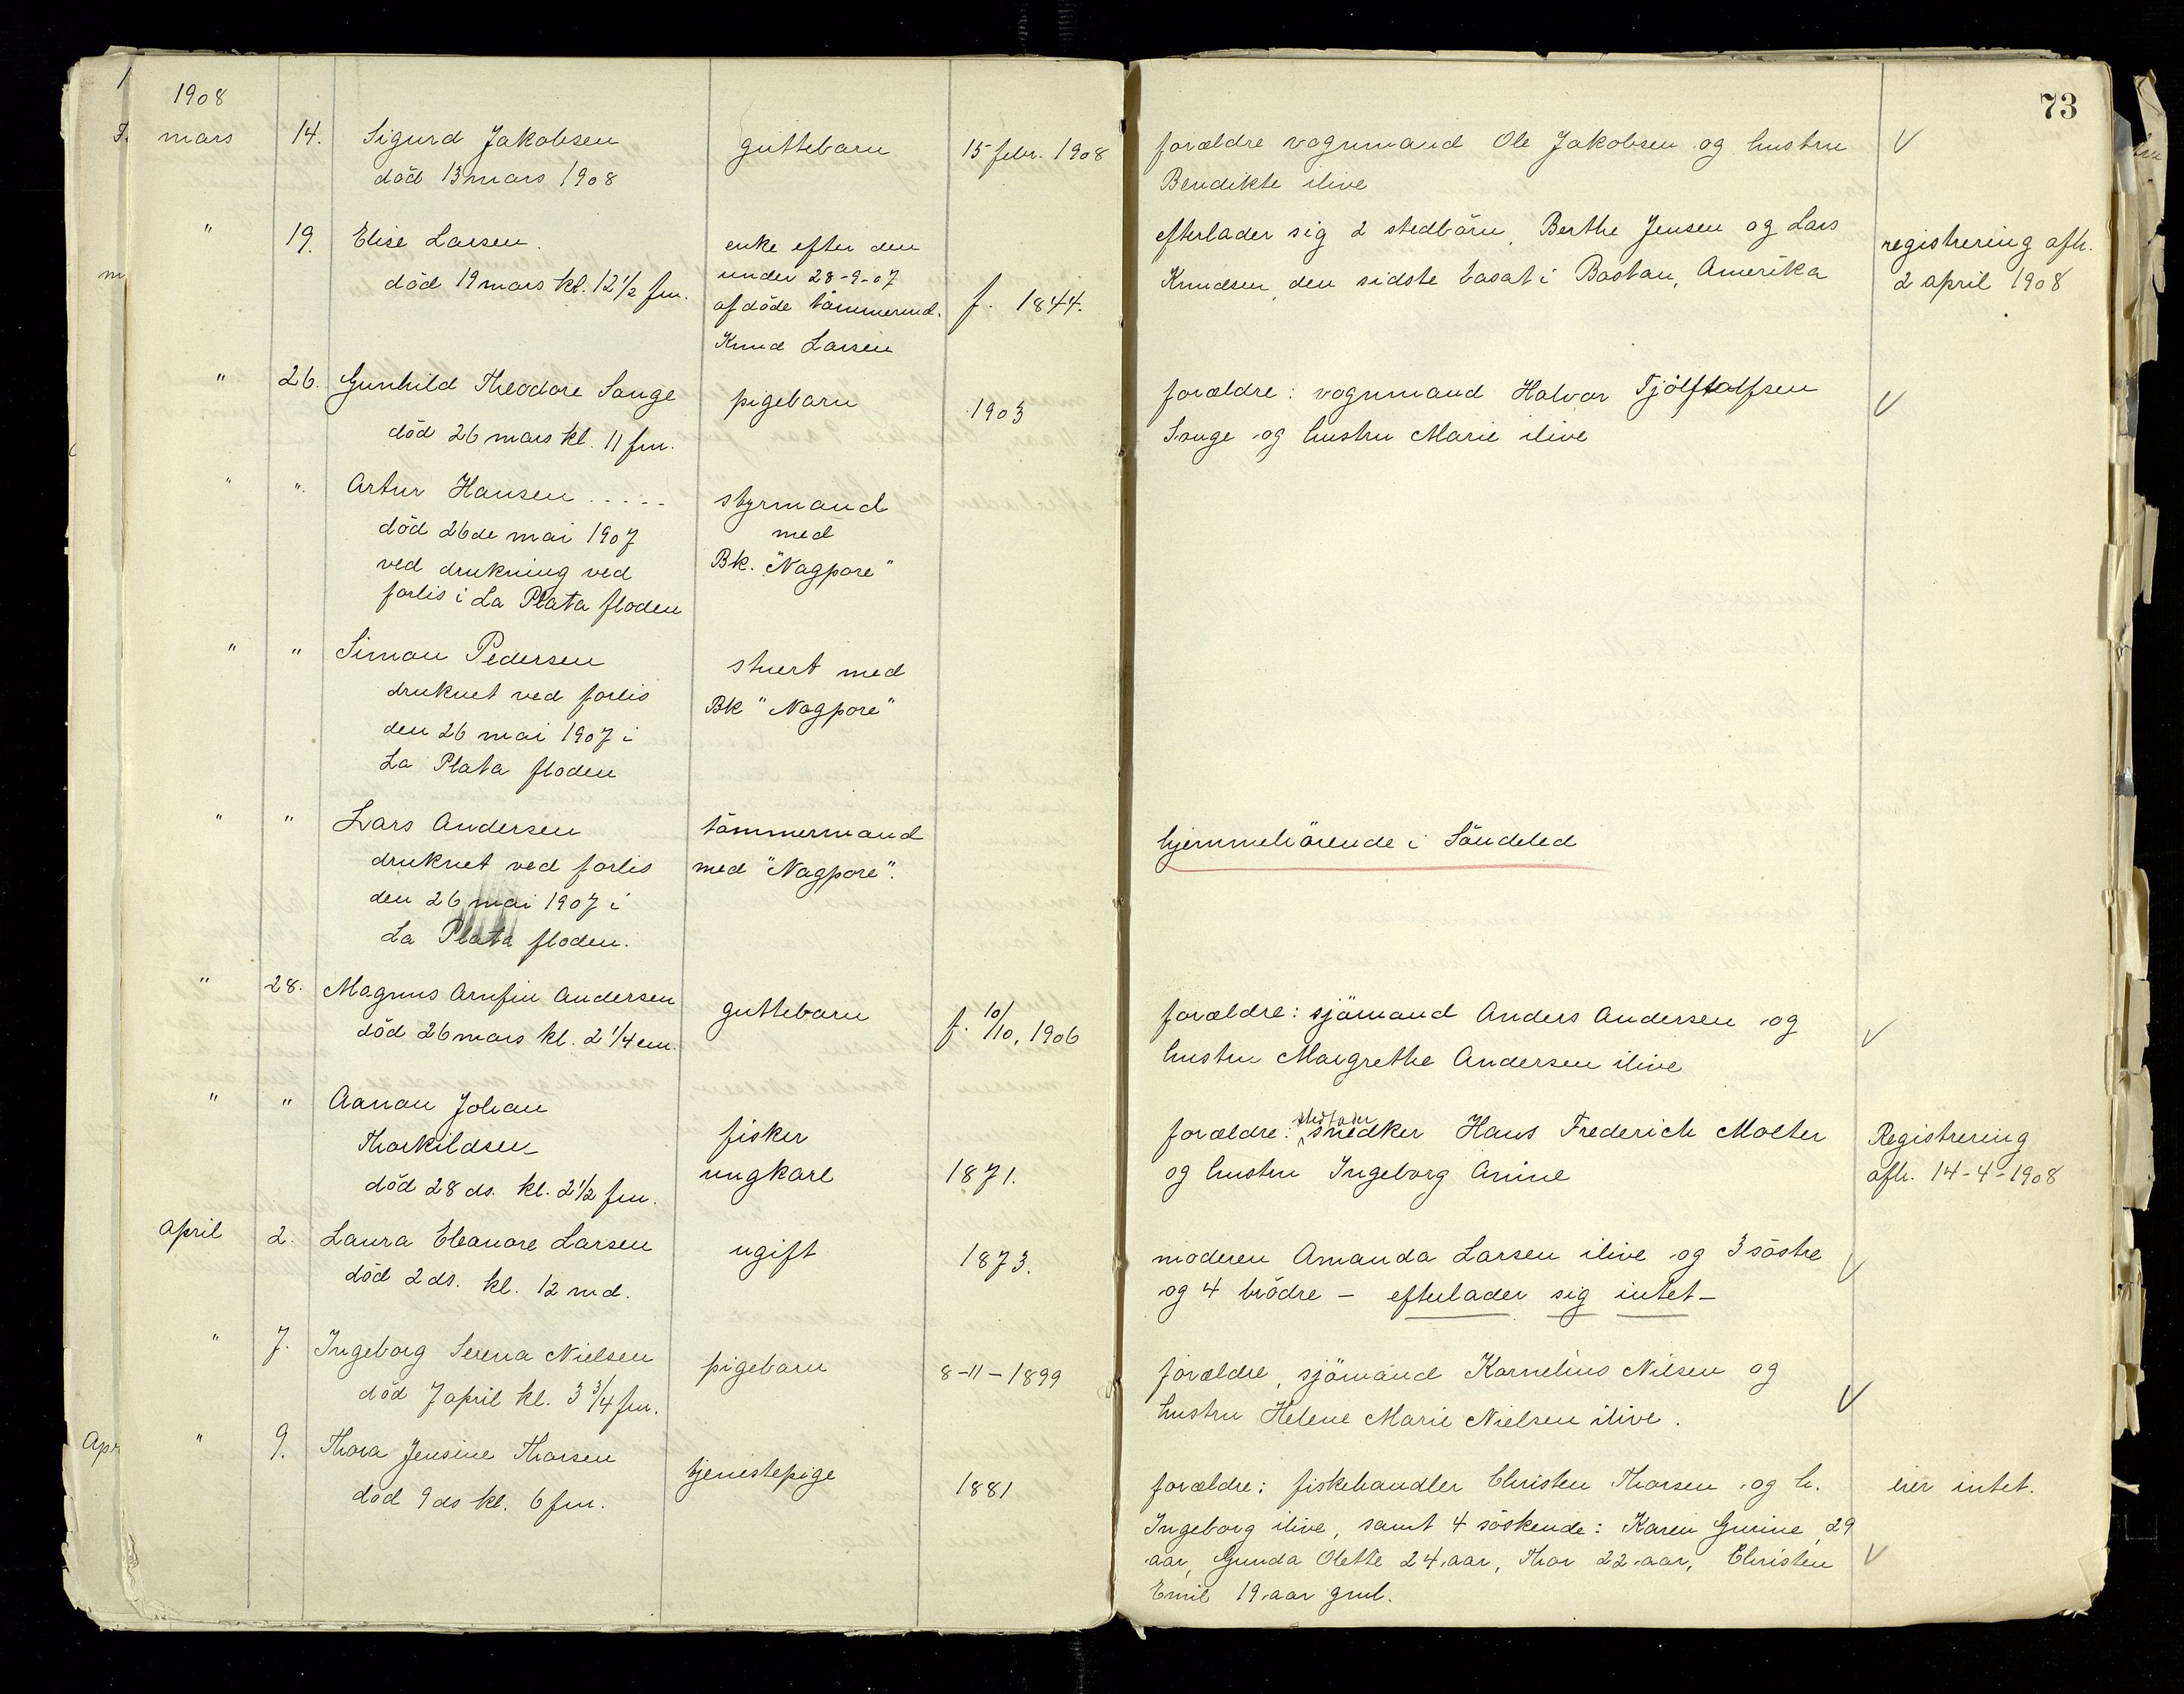 73
1908
mars 14. Sigurd Jakobsen guttebarn 15 febr. 1908 forældre vognmand Ole Jakobsen og hustru
död 13 mars 1908 Bendikte ilive
" 19. Elise Larsen. enke efter den efterlader sig 2 stedbörn, Berthe Jensen og Lars registrering afh.
död 19 mars kl. 12 1/2 fm. under 28-9-07 f. 1844. Knudsen, den sidste bosat i Bostan, Amerika 2 april 1908
afdöde tömmermd.
Knud Larsen
" 26. Gunhild Theodore Songe pigebarn 1903 forældre: vognmand Halvor Tjölftolfsen
död 26 mars kl. 11 fm. Songe og hustru Marie ilive
" ". Artur Hansen ..... styrmand
död 26de mai 1907 med
ved drukning ved Bk. "Nagpore"
forlis i La Plata floden
" " Simon Pedersen stuert med
druknet ved forlis Bk "Nagpore"
den 26 mai 1907 i
La Plata floden
" " Lars Andersen tömmermand hjemmehörende i Söndeled
druknet ved forlis med "Nagpore".
den 26 mai 1907 i
La Plata floden.
" 28. Magnus Arnfin Andersen guttebarn f. 10/10, 1906 forældre: sjömand Anders Andersen og
död 26 mars kl. 2 1/4 em. hustru Margrethe Andersen ilive
" " Aanon Johan fisker stedfader
Thorkildsen ungkarl 1871. forældre: snedker Hans Frederich Molter Registrering
död 28 ds. kl. 2 1/2 fm. og hustru Ingeborg Anine afh. 14-4-1908
april 2. Laura Eleanore Larsen ugift 1873. moderen Amanda Larsen ilive og 3 söstre
död 2 ds. kl. 12 md. og 4 brödre – efterlader sig intet –
" 7. Ingeborg Serena Nielsen pigebarn 8-11-1899 forældre, sjömand Kornelius Nilsen og
död 7 april kl. 3 3/4 fm. hustru Helene Marie Nielsen ilive.
" 9. Thora Jensine Thorsen tjenestepige 1881 forældre: fiskehandler Christen Thorsen og h. eier intet.
död 9 ds kl. 6 fm. Ingeborg ilive, samt 4 söskende: Karen Gurine 29
aar, Gunda Olette 24 aar, Thor 22 aar, Christen
Emil 19 aar gml.